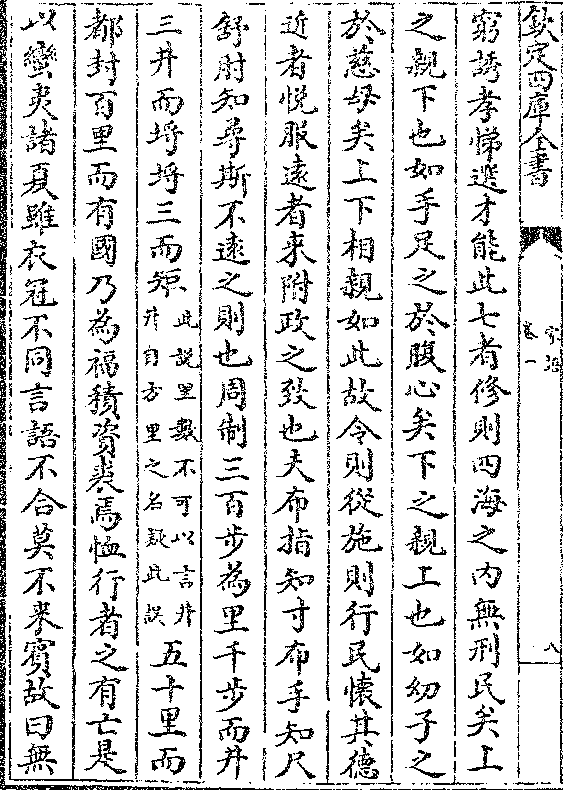 欽定四庫全書
家語
卷一
八
窮誘孝悌選才能此七者修則四海之内無刑民矣上
之親下也如手足之於腹心矣下之親上也如幼子之
於慈母矣上下相親如此故令則從施則行民懷其德
近者悦服遠者來附政之致也夫布指知寸布手知尺
舒肘知尋斯不遠之則也周制三百步為里千步而井
三井而埒埒三而矩
此說里數不可以言井
井自方里之名疑此誤
五十里而
都封百里而有國乃為福積資裘焉恤行者之有亡是
以蠻夷諸夏雖衣冠不同言語不合莫不來賓故曰無